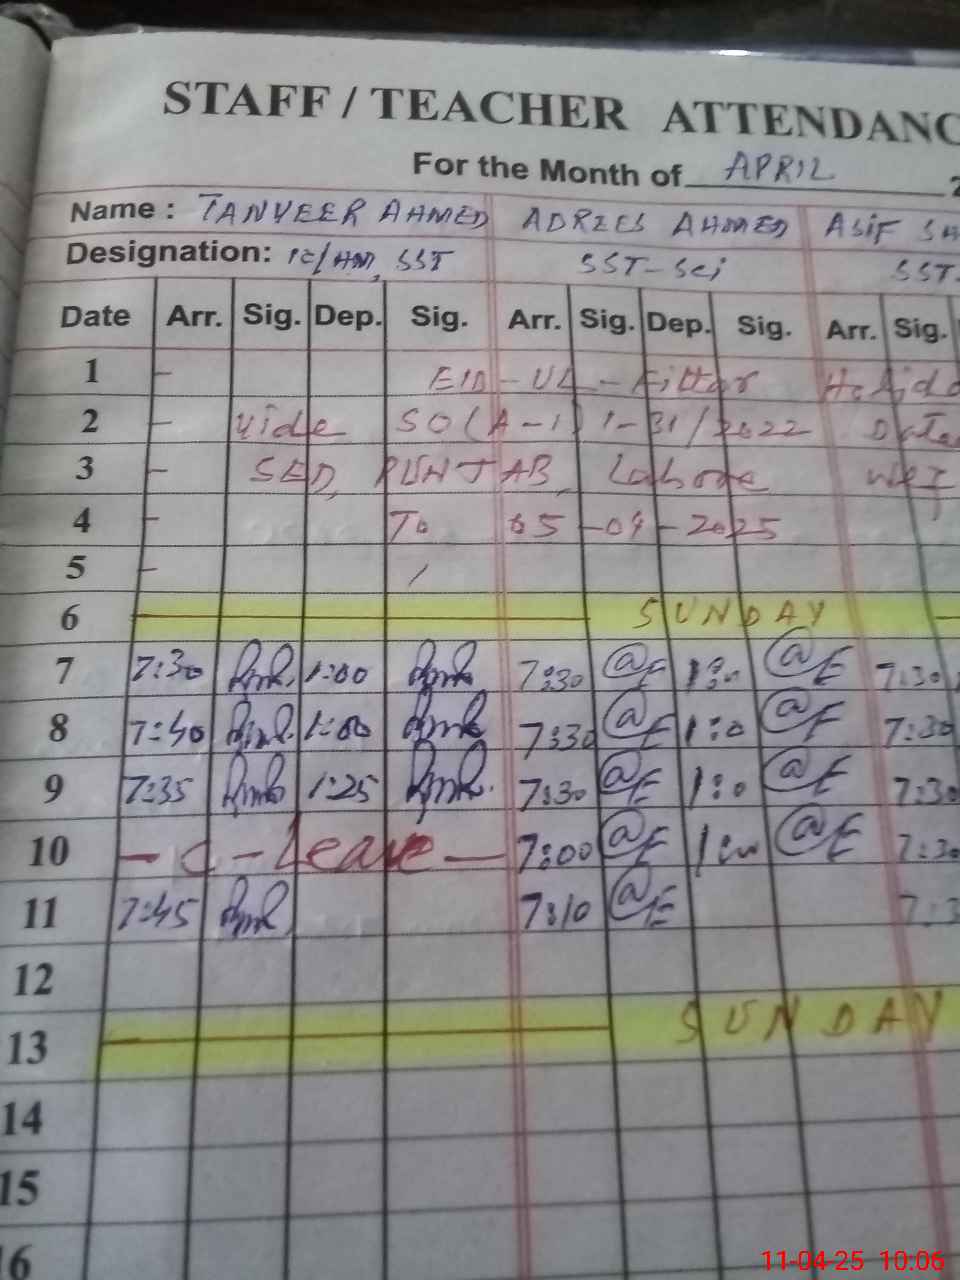 STAFF / TEACHER ATTENDANC
For the Month of APRIL 2
Name : TANVEER AHMED ADREES AHMED ASIF
Designation: SST SST-Sci SST
Date Arr. Sig. Dep. Sig. Arr. Sig. Dep. Sig. Arr. Sig.
1 EID-UL-Fittar
2 vide SO(A-1) 1-31/2022
3 SED, PUNJAB, Lahore
4 To 05-04-2025
5
6 SUNDAY
7 7:30 1:00 7:30 7:30
8 7:40 1:00 7:30 1:0 7:30
9 7:35 1:25 7:30 1:0 7:30
10 - C-Leave - 7:00 7:30
11 7:45 7:10
12
13 SUNDAY
14
15
16
11-04-25 10:06